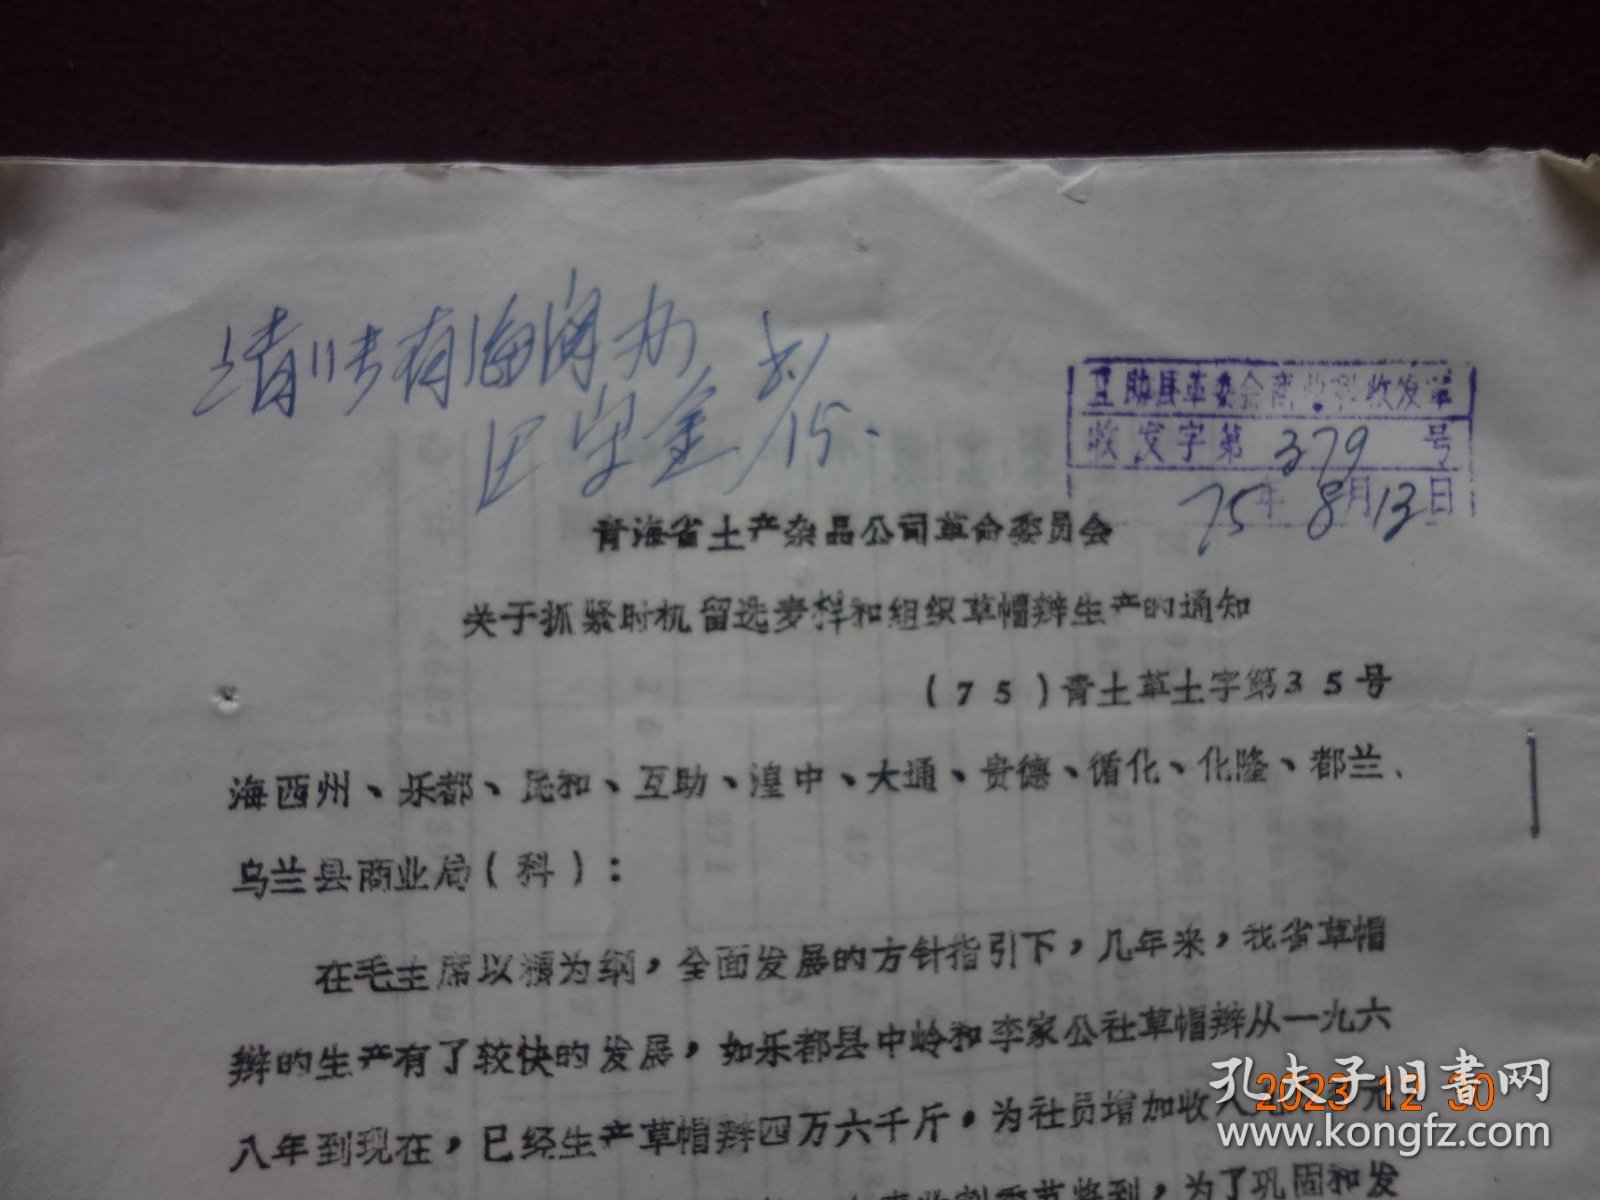 请师有海阅办
8/15.
互助县革委会商业科收发章
收发字第379号
75年8月13日
青海省土产杂品公司革命委员会
关于抓紧时机留选麦秆和组织草帽辫生产的通知
(75)青土革土字第35号
海西州、乐都、民和、互助、湟中、大通、贵德、循化、化隆、都兰、
乌兰县商业局(科):
在毛主席以粮为纲,全面发展的方针指引下,几年来,我省草帽
辫的生产有了较快的发展,如乐都县中岭和李家公社草帽辫从一九六
八年到现在,已经生产草帽辫四万六千斤,为社员增加收入
元
收割季节将到,为了巩固和发
2023 12 30
孔夫子旧书网
www.kongfz.com